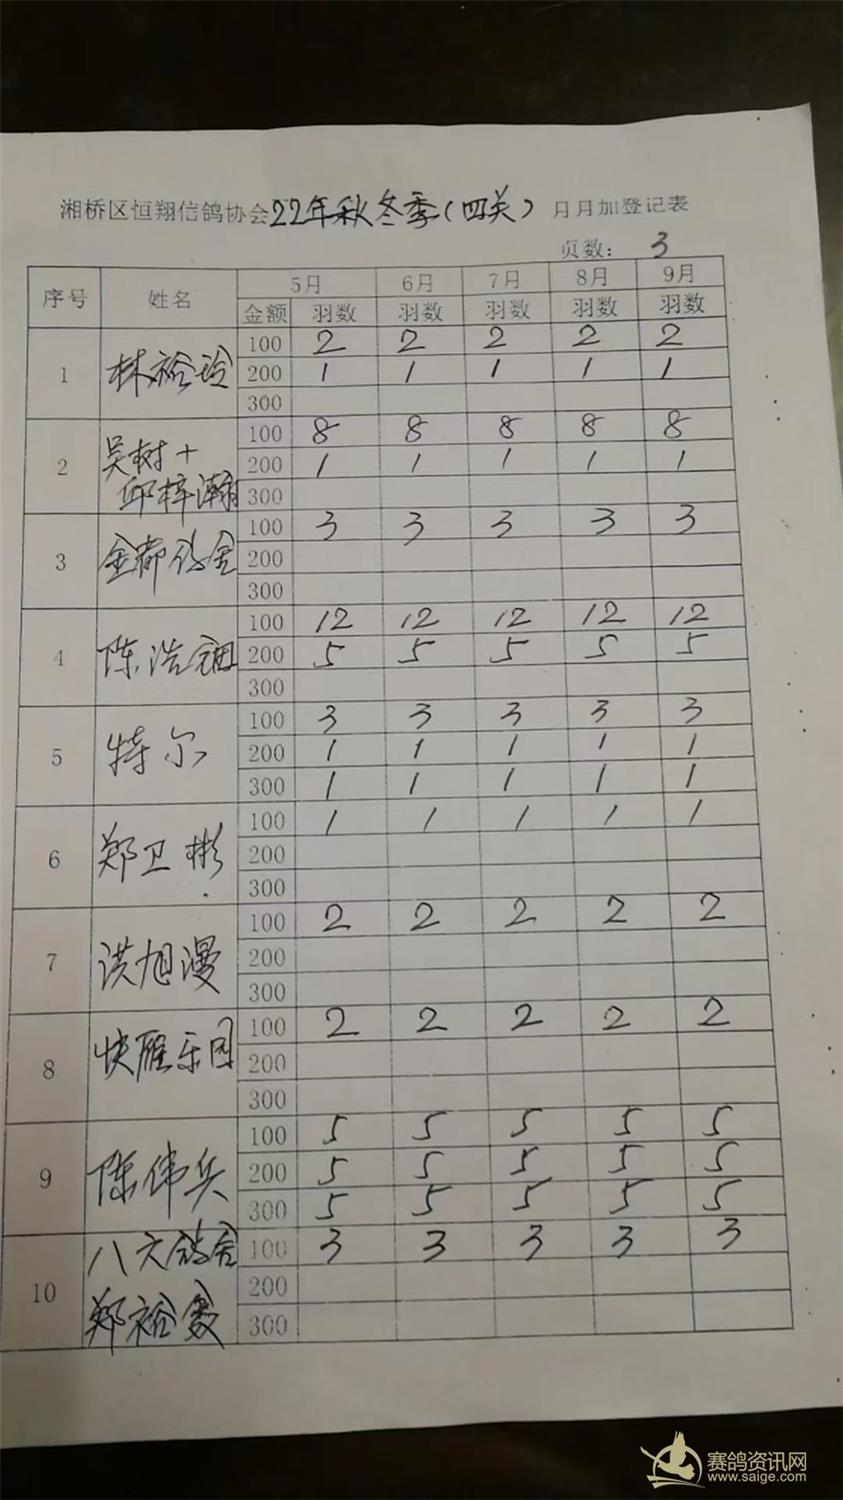 湘桥区恒翔信鸽协会22年秋冬季(四关)月月加登记表
页数: 3
序号 姓名 5月 6月 7月 8月 9月
金额 羽数 羽数 羽数 羽数 羽数
1 林裕玲
100 2 2 2 2 2
200 1 1 1 1 1
300
2 吴树+
邱梓瀚
100 8 8 8 8 8
200 1 1 1 1 1
300
3 金都鸽舍
100 3 3 3 3 3
200
300
4 陈浩
100 12 12 12 12 12
200 5 5 5 5 5
300
5 特尔
100 3 3 3 3 3
200 1 1 1 1 1
300 1 1 1 1 1
6 郑卫彬
100 1 1 1 1 1
200
300
7 洪旭漫
100 2 2 2 2 2
200
300
8 快雁乐园
100 2 2 2 2 2
200
300
9 陈伟兵
100 5 5 5 5 5
200 5 5 5 5 5
300 5 5 5 5 5
10 八六鸽舍
郑裕
100 3 3 3 3 3
200
300
赛鸽资讯网
www.saige.com